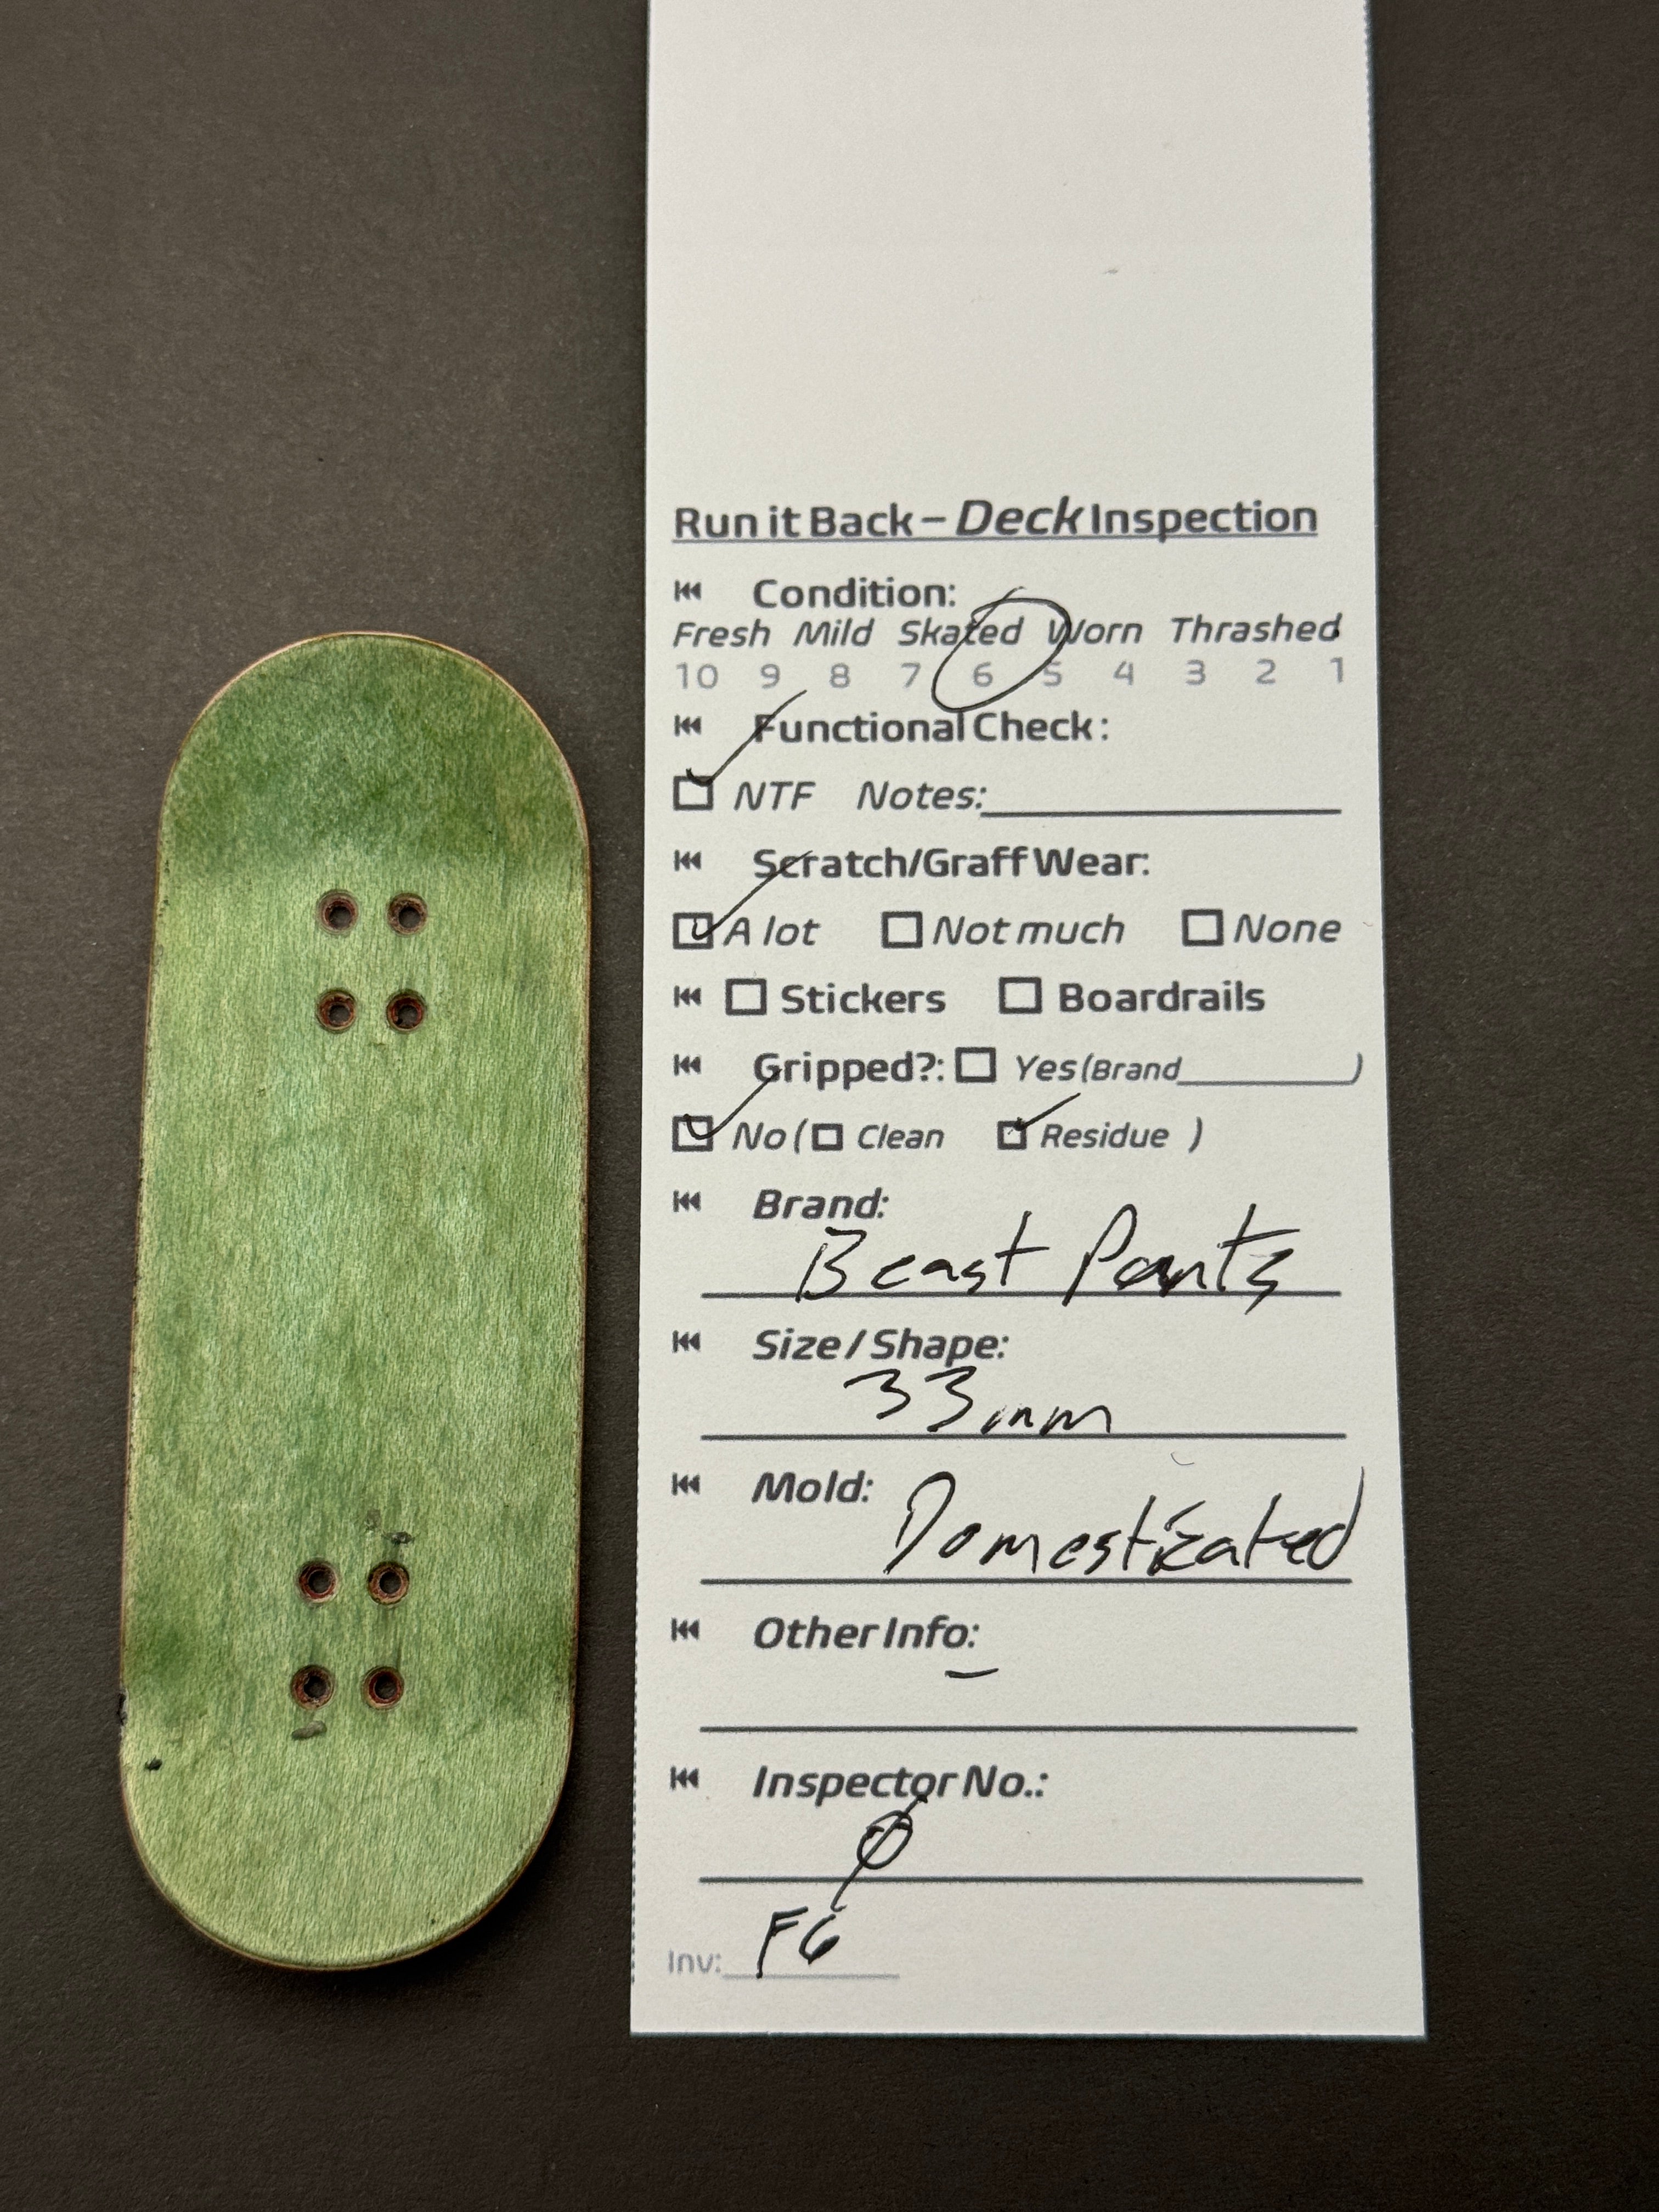 Run it Back – Deck Inspection
Condition:
Fresh Mild Skated Worn Thrashed
10 9 8 7 6 5 4 3 2 1
Functional Check:
NTF Notes:
Scratch/Graff Wear:
A lot Not much None
Stickers Boardrails
Gripped?: Yes (Brand )
No ( Clean Residue )
Brand:
Beast Pants
Size / Shape:
33mm
Mold: Domesticated
Other Info:
–
Inspector No.:
Ø
Inv: F6